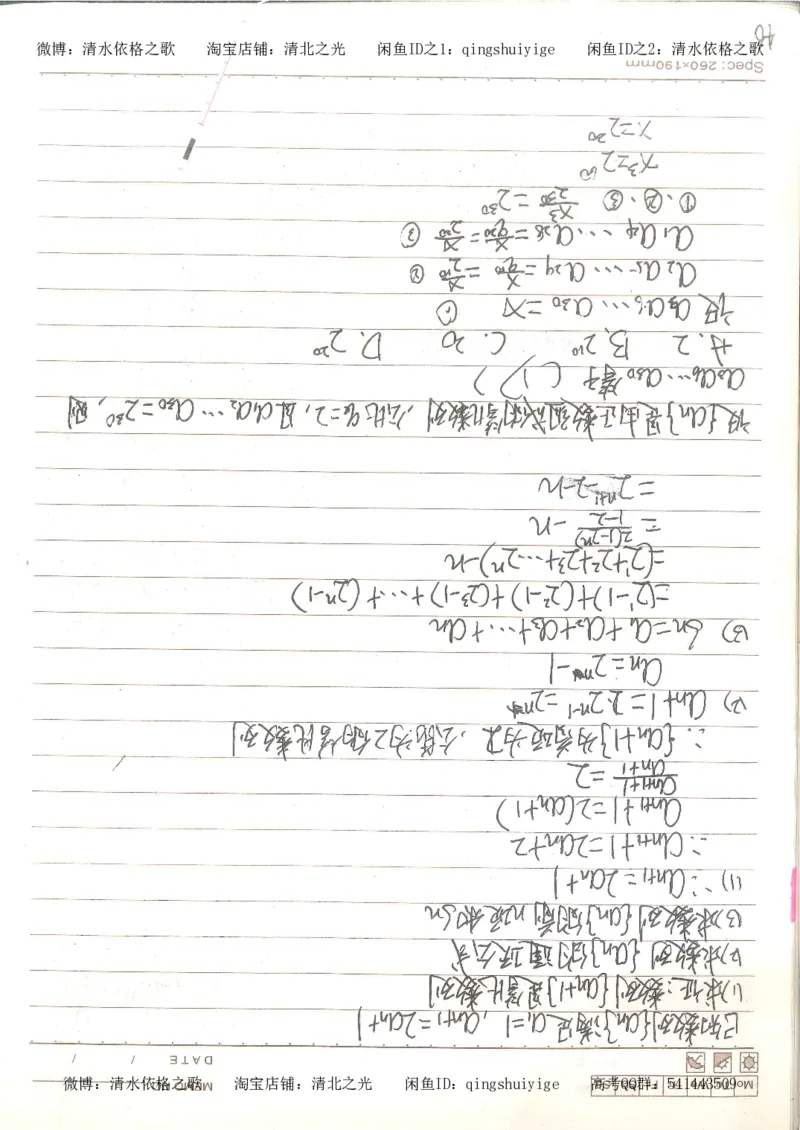 微博：清水依格之歌 淘宝店铺：清北之光 闲鱼ID之1：qingshuiyige 闲鱼ID之2：清水依格之歌
DATE / /
已知数列{an}满足a₁=1, aₙ₊₁=2an+1
(1)求证：数列{an+1}是等比数列
(2)求数列{an}的通项公式
(3)求数列{an}的前n项和Sn
(1) ∵aₙ₊₁=2an+1
∴aₙ₊₁+1=2an+2
aₙ₊₁+1=2(an+1)
(aₙ₊₁+1)/(an+1)=2
∴{an+1}为首项为2, 公比为2的等比数列
(2) an+1=2·2ⁿ⁻¹=2ⁿ
an=2ⁿ-1
(3) Sn=a₁+a₂+a₃+…+an
=(2¹-1)+(2²-1)+(2³-1)+…+(2ⁿ-1)
=(2¹+2²+2³+…2ⁿ)-n
=2(1-2ⁿ)/(1-2)-n
=2ⁿ⁺¹-2-n
设{an}是由正数组成的等比数列, 公比q=2, 且a₁a₂…a₃₀=2³⁰, 则
a₃a₆…a₃₀等于( D )
A. 2 B. 2¹⁰ C. 20 D. 2²⁰
设a₃a₆…a₃₀=X ①
a₂a₅…a₂₉=X/q¹⁰=X/2¹⁰ ②
a₁a₄…a₂₈=X/q²⁰=X/2²⁰ ③
①·②·③ X³/2³⁰=2³⁰
X³=2⁶⁰
X=2²⁰
Spec: 260×190mm
微博：清水依格之歌 淘宝店铺：清北之光 闲鱼ID：qingshuiyige 高考QQ群：541443509